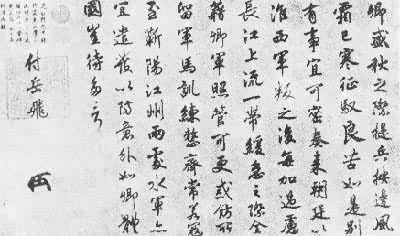 卿盛秋之際提兵按邊風
霜已寒征馭良苦如是別
有事宜可密奏來朝廷以
淮西軍叛之後每加過慮
長江上流一帶緩急之際全
藉卿軍照管可更戒飭所
留軍馬訓練整齊常若寇
至蘄陽江州兩處水軍亦
宜遣發以防意外如卿體
國豈待多言
付岳飛